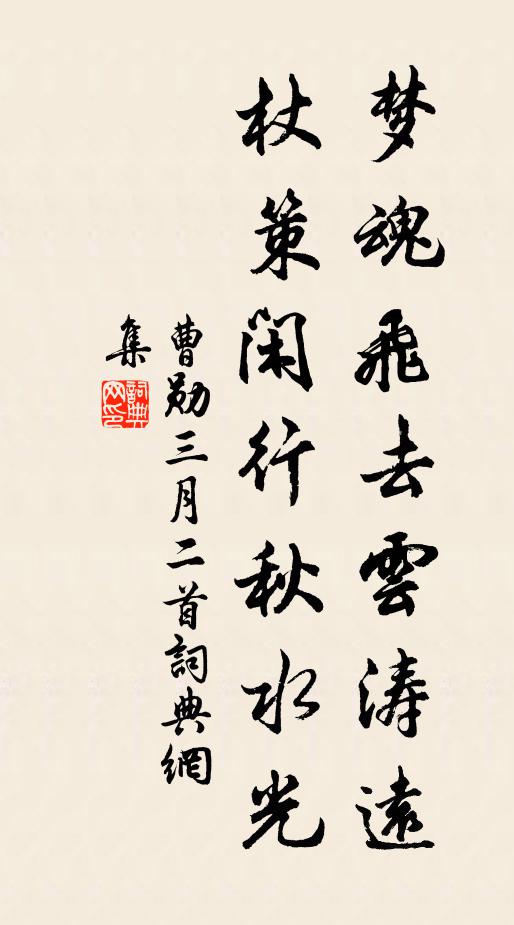 梦魂飛去雲涛遠
杖策閑行秋水光
曹勛三月二首詞典網
集
詞典網印